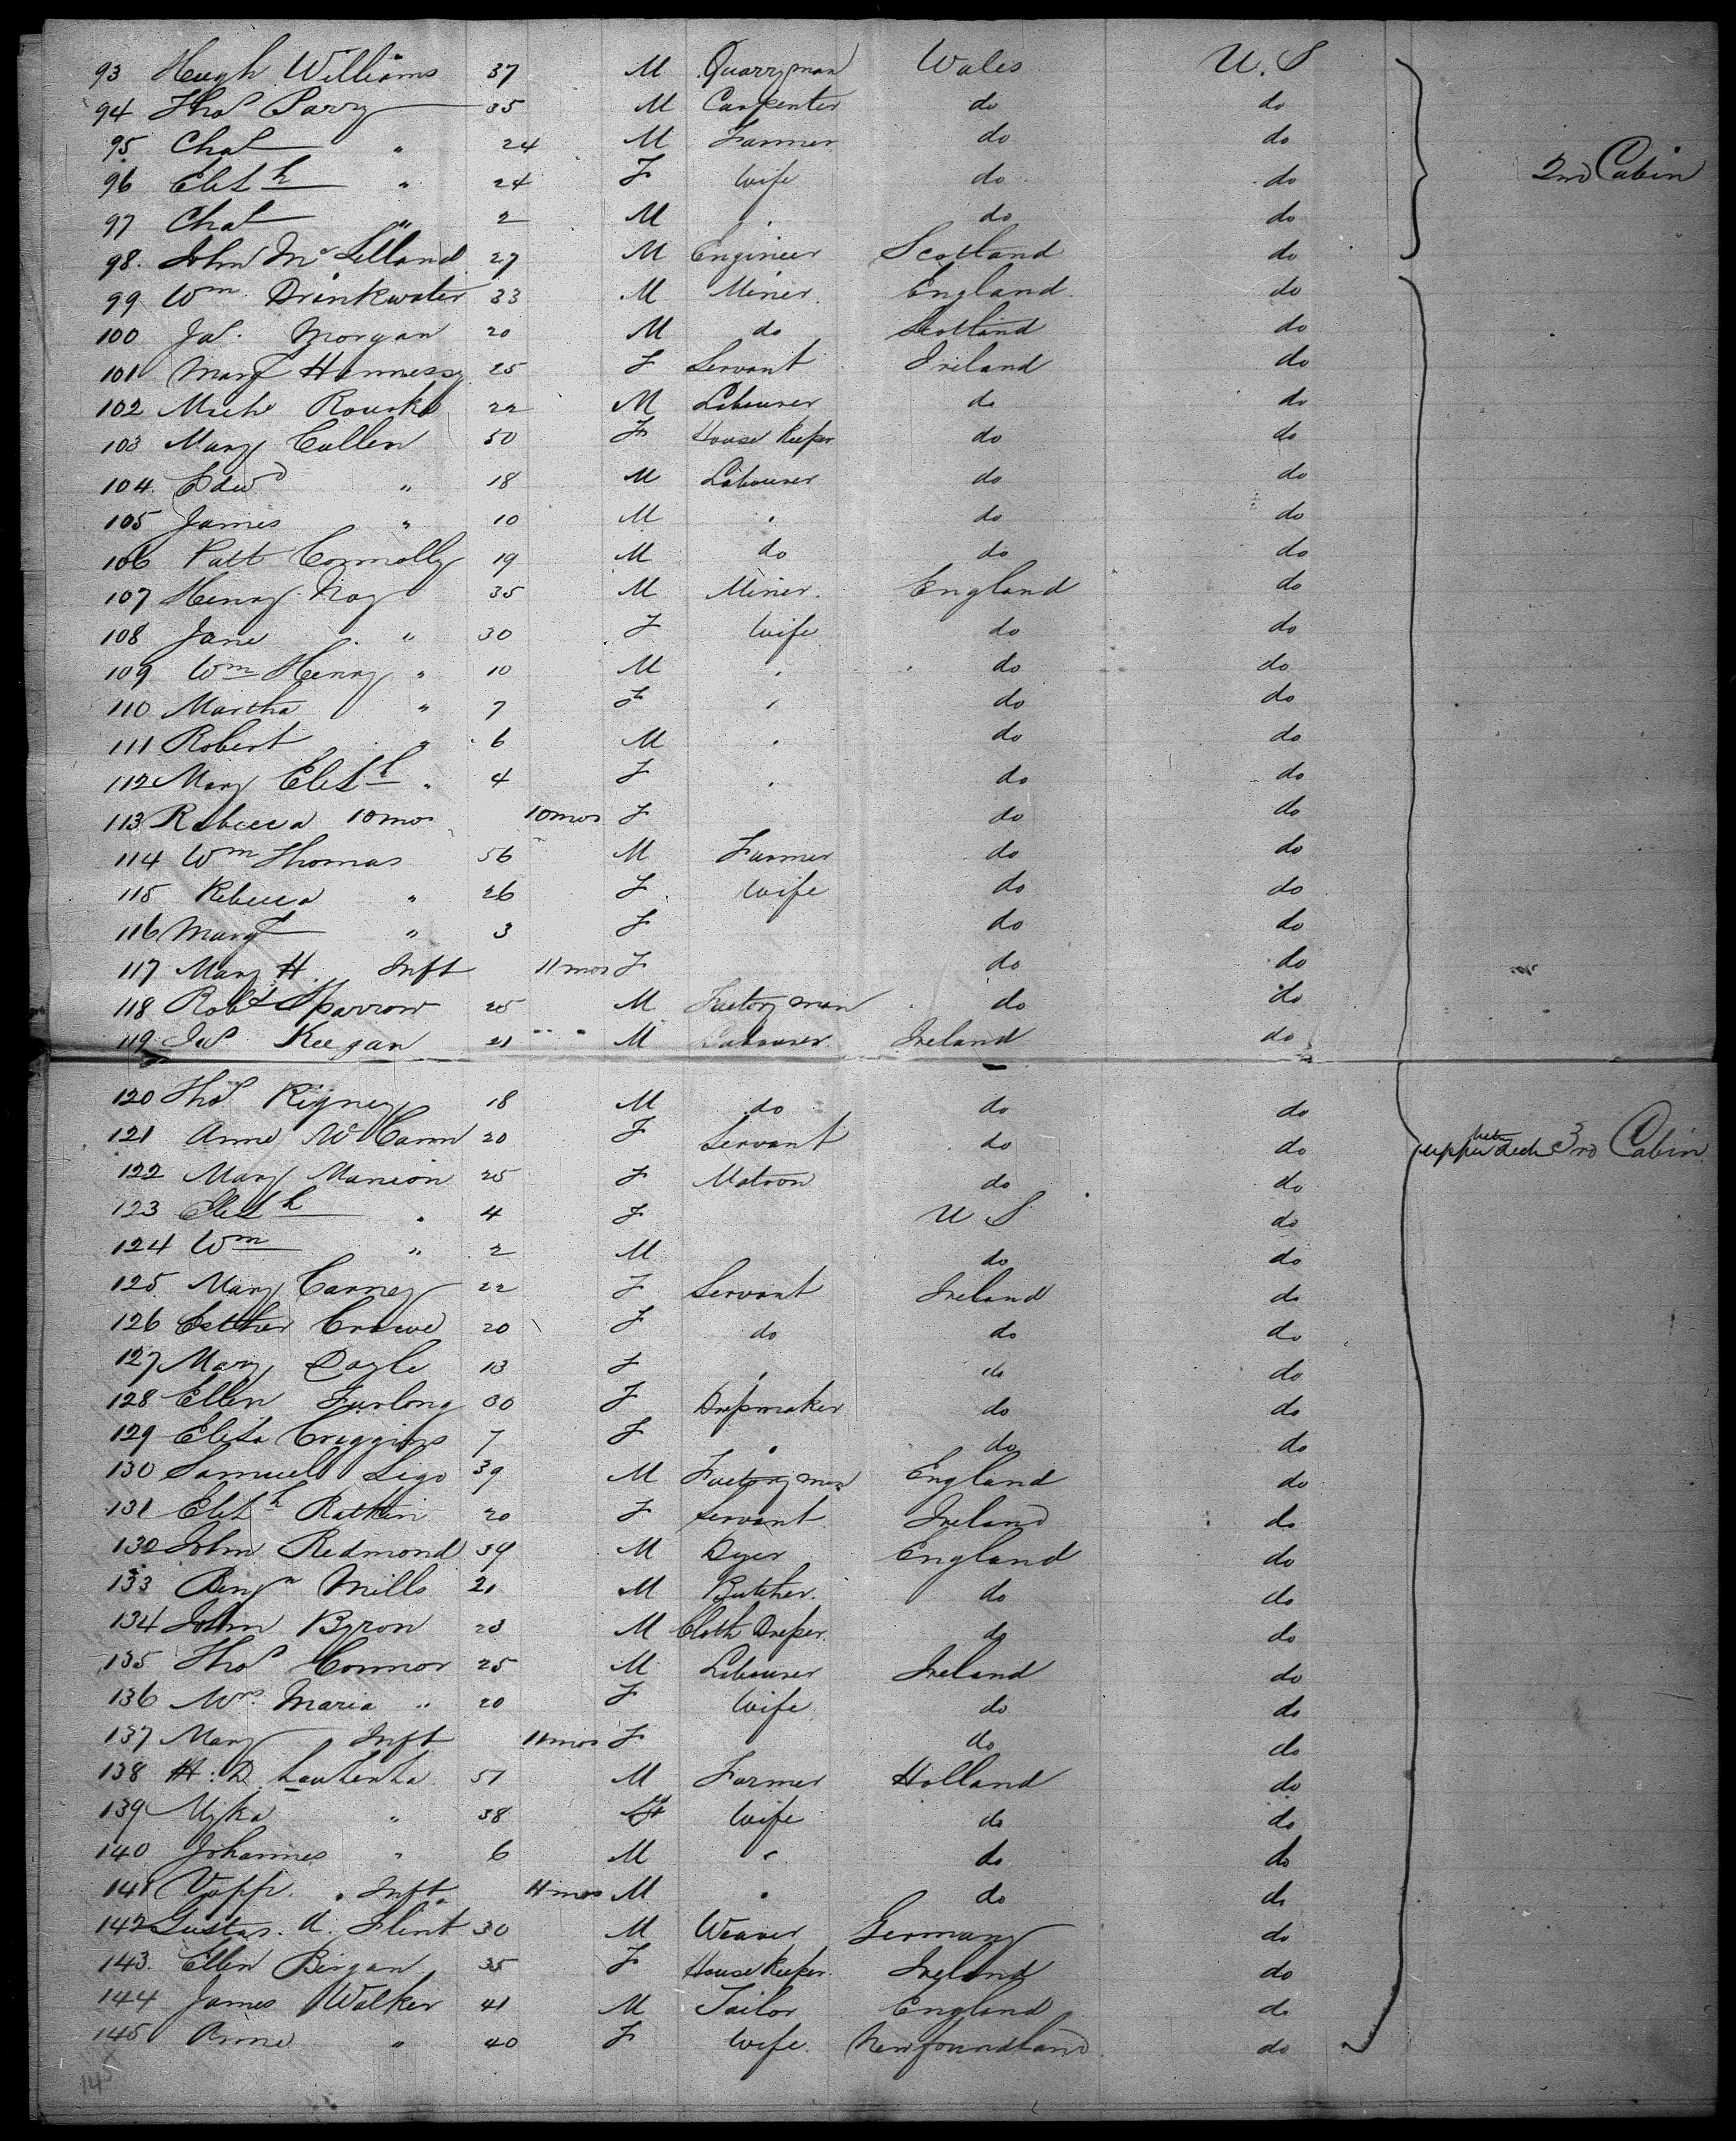 93 Hugh Williams 37 M Quarryman Wales U.S
94 Thos Parry 35 M Carpenter do do
95 Chas " 24 M Farmer do do
96 Elizth " 24 F Wife do do
2nd Cabin
97 Chas " 2 M " do do
98. John McLelland 27 M Engineer Scotland do
99 Wm Drinkwater 33 M Miner England do
100 Jas. Morgan 20 M do Scotland do
101 Margt Hennessy 25 F Servant Ireland do
102 Michl Rourke 22 M Labourer do do
103 Mary Cullen 50 F House Keeper do do
104. Edwd " 18 M Labourer do do
105 James " 10 M " do do
106 Patt Connolly 19 M do do do
107 Henry Nay 35 M Miner England do
108 Jane " 30 F Wife do do
109 Wm Henry " 10 M " do do
110 Martha " 7 F " do do
111 Robert " 6 M " do do
112 Mary Elizth " 4 F " do do
113 Rebecca 10mos 10mos F do do
114 Wm Thomas 56 M Farmer do do
115 Rebecca " 26 F Wife do do
116 Margt " 3 F do do
117 Mary H. Inft 11mos F do do
118 Robt Sparrow 25 M Factory man do do
119 Jas Keegan 21 M Labourer Ireland do
120 Thos Rigney 18 M do do do
121 Anne McCann 20 F Servant do do
upper betn deck 3rd Cabin
122 Mary Manion 25 F Matron do do
123 Elizth " 4 F U S do
124 Wm " 2 M do do
125. Mary Carney 22 F Servant Ireland do
126 Esther Crowe 20 F do do do
127 Mary Doyle 13 F " do do
128 Ellen Furlong 30 F Dressmaker do do
129 Eliza Criggins 7 F " do do
130 Samuel Sego 39 M Factory man England do
131 Elizth Ratkin 20 F Servant Ireland do
132 John Redmond 39 M Dyer England do
133 Benjn Mills 21 M Butcher do do
134 John Byron 23 M Cloth Dresser do do
135 Thos Connor 25 M Labourer Ireland do
136 Mrs Maria " 20 F Wife do do
137 Mary Inft 11mos F do do
138 H. D. 51 M Farmer Holland do
139 " 38 F Wife do do
140 Johannes " 6 M " do do
141 " Inft 11mos M " do do
142 Gustav. A. Flint 30 M Weaver Germany do
143. Ellen Bergan 35 F House Keeper Ireland do
144 James Walker 41 M Tailor England do
145 Anne " 40 F Wife Newfoundland do
145